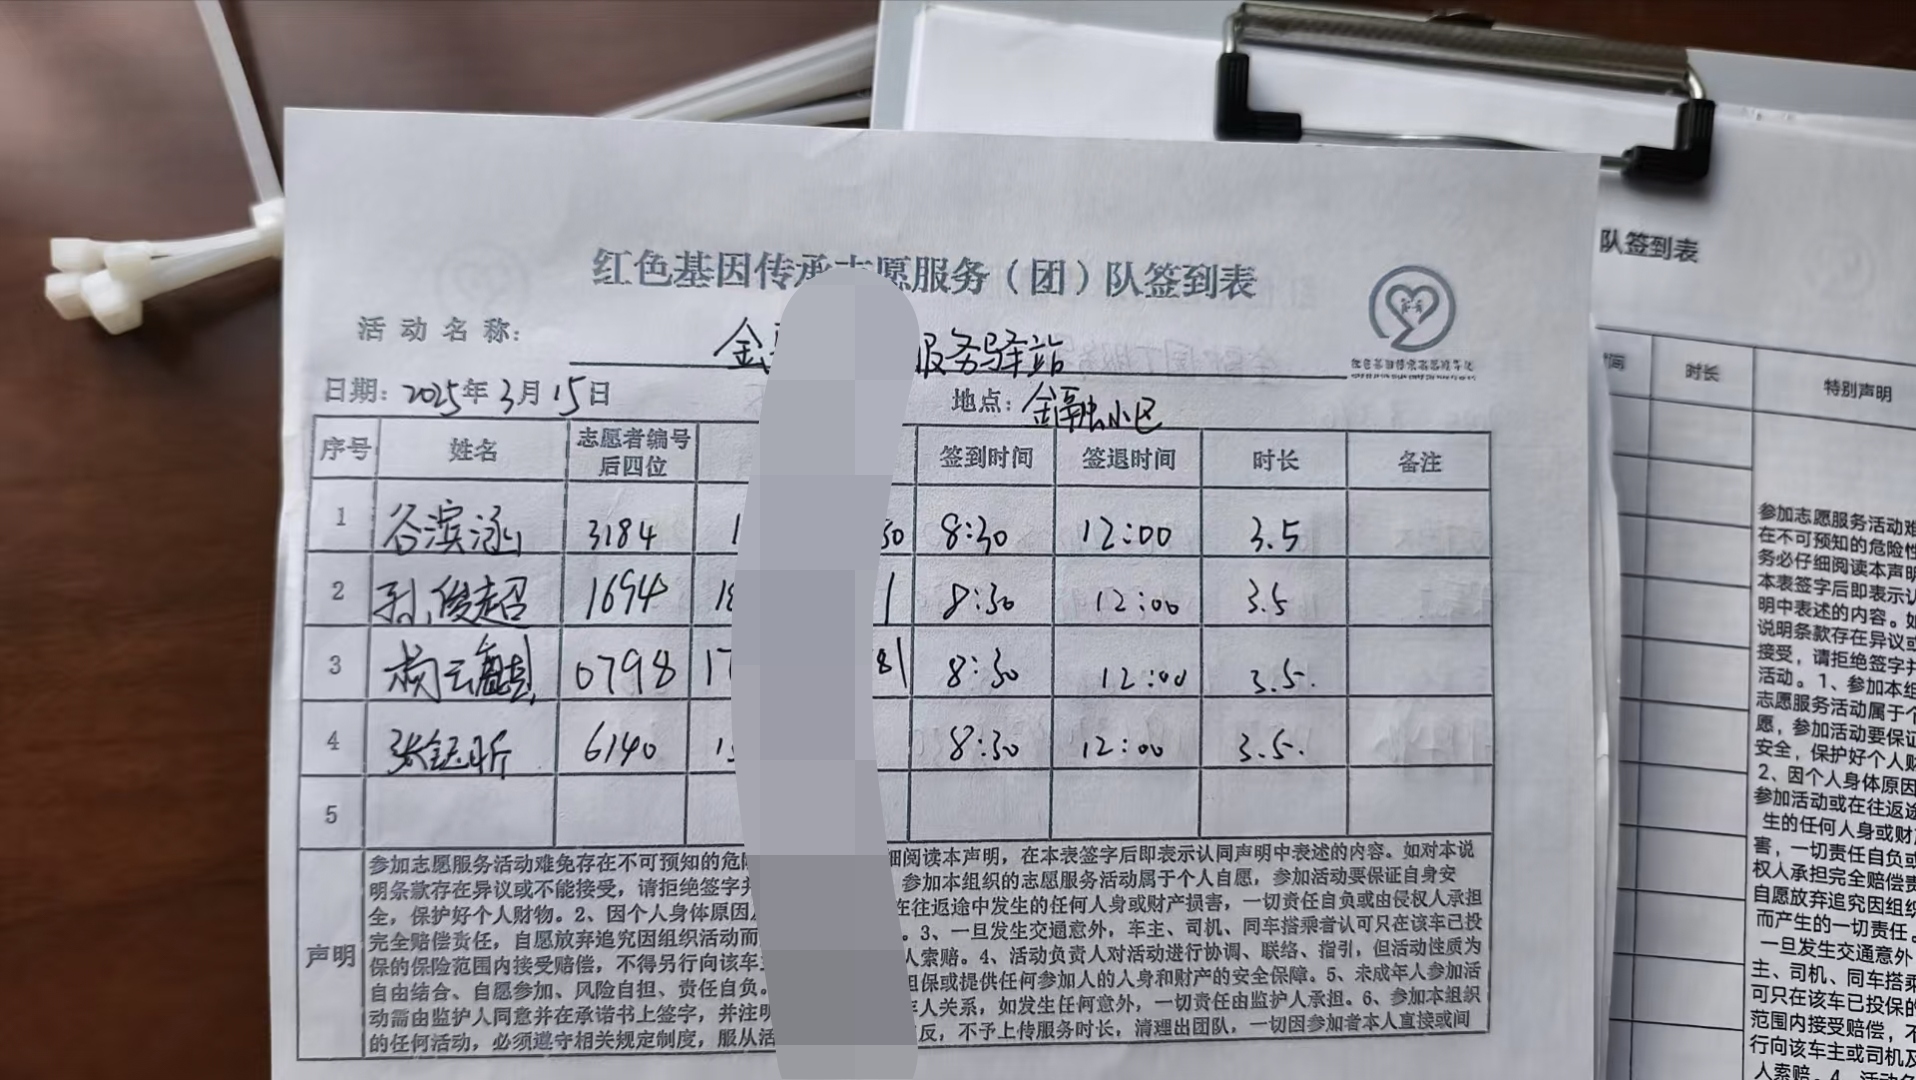 红色基因传承志愿服务（团）队签到表
活动名称： 金 服务驿站
日期：2025年3月15日 地点：金融小区
序号 姓名 志愿者编号后四位 签到时间 签退时间 时长 备注
1 谷滨涵 3184 1 50 8:30 12:00 3.5
2 孙俊超 1694 18 1 8:30 12:00 3.5
3 杨云 0798 17 81 8:30 12:00 3.5.
4 张钰昕 6140 1 8:30 12:00 3.5.
5
声明
参加志愿服务活动难免存在不可预知的危 细阅读本声明，在本表签字后即表示认同声明中表述的内容。如对本说
明条款存在异议或不能接受，请拒绝签字并 参加本组织的志愿服务活动属于个人自愿，参加活动要保证自身安
全，保护好个人财物。2、因个人身体原因 在往返途中发生的任何人身或财产损害，一切责任自负或由侵权人承担
完全赔偿责任，自愿放弃追究因组织活动而 。3、一旦发生交通意外，车主、司机、同车搭乘者认可只在该车已投
保的保险范围内接受赔偿，不得另行向该车主 人索赔。4、活动负责人对活动进行协调、联络、指引，但活动性质为
自由结合、自愿参加、风险自担、责任自负。 担保或提供任何参加人的人身和财产的安全保障。5、未成年人参加活
动需由监护人同意并在承诺书上签字，并注明 人关系，如发生任何意外，一切责任由监护人承担。6、参加本组织
的任何活动，必须遵守相关规定制度，服从活 反，不予上传服务时长，清理出团队，一切因参加者本人直接或间
队签到表
时长 特别声明
参加志愿服务活动难
在不可预知的危险性
务必仔细阅读本声明
本表签字后即表示认
明中表述的内容。如
说明条款存在异议或
接受，请拒绝签字并
活动。1、参加本组
志愿服务活动属于个
愿，参加活动要保证
安全，保护好个人财
2、因个人身体原因
参加活动或在往返途
生的任何人身或财产
害，一切责任自负或
权人承担完全赔偿责
自愿放弃追究因组织
而产生的一切责任。
一旦发生交通意外
主、司机、同车搭乘
可只在该车已投保的
范围内接受赔偿，不
行向该车主或司机及
人索赔。4、活动负